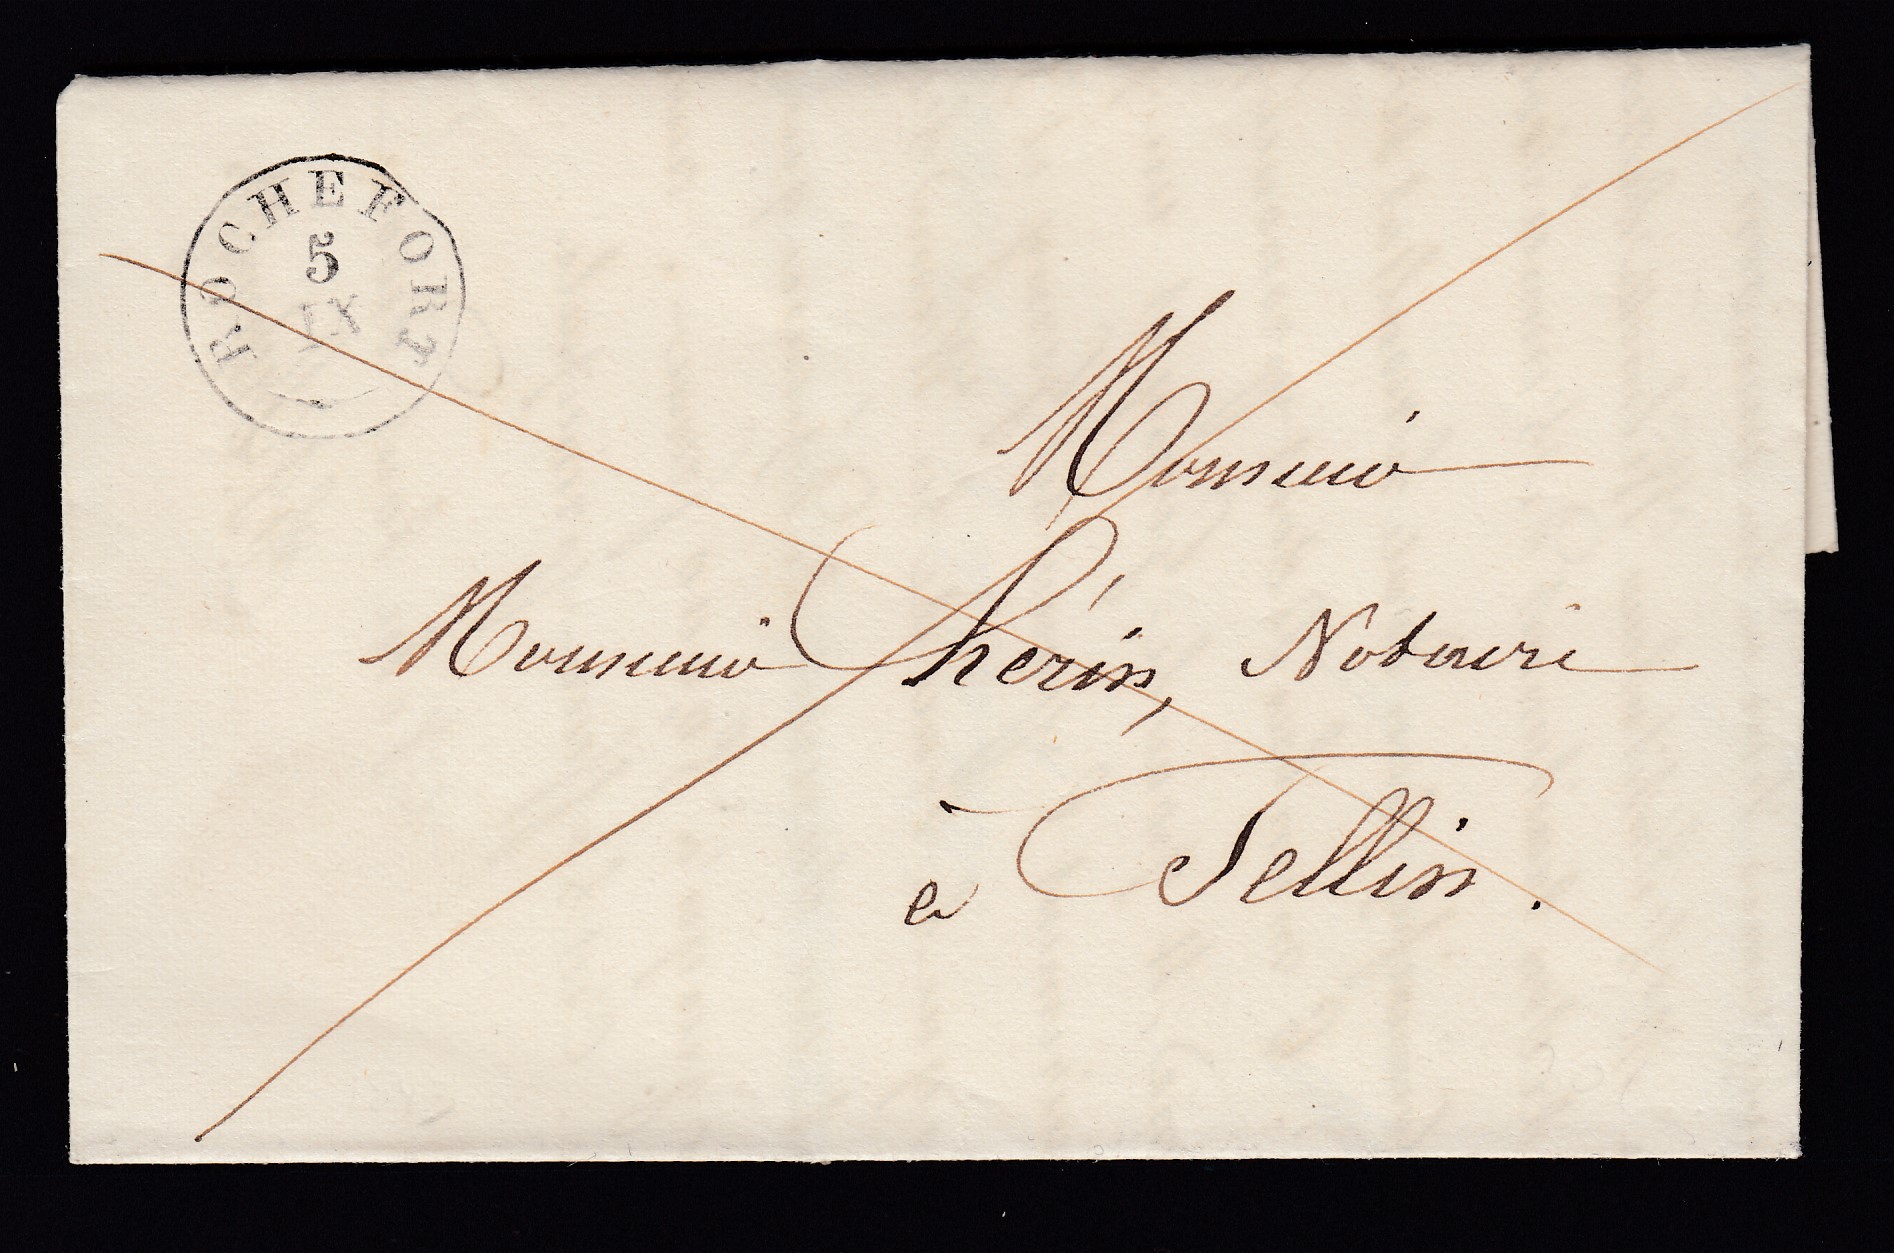 ROCHEFORT
5
IX
Monsieur
Monsieur Thérin, Notaire
à Tellin.